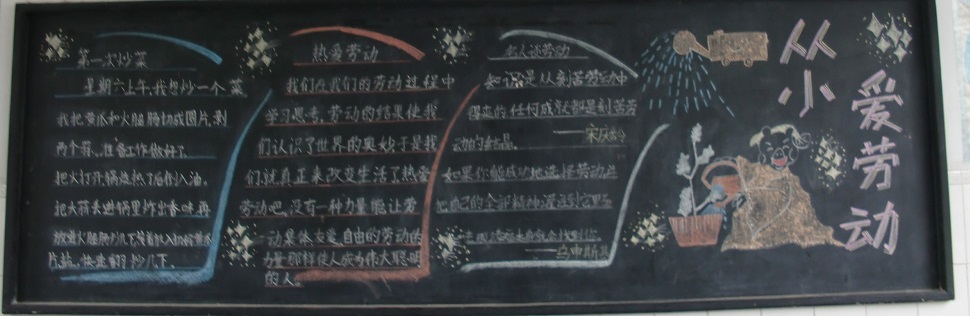 从小
爱劳动
第一次炒菜
星期六上午,我想炒一个菜
我把黄瓜和火腿肠切成圆片,剥
两个蒜,准备工作做好了.
把火打开锅烧热了后倒入油,
把大蒜丢进锅里炸出香味再
片盐,快速翻炒几下.
热爱劳动
我们在我们的劳动过程中
学习思考,劳动的结果使我
们认识了世界的奥妙于是我
们就真正来改变生活了热爱
劳动吧,没有一种力量能让劳
动集体友爱自由的劳动的
力量那样使人成为伟大聪明
的人。
名人谈劳动
知识是从刻苦劳动中
得来的任何成就都是刻苦劳
动的结晶。
——宋庆龄
如果你能成功地选择劳动并
把自己的全部精神灌注到它里去
——乌申斯基